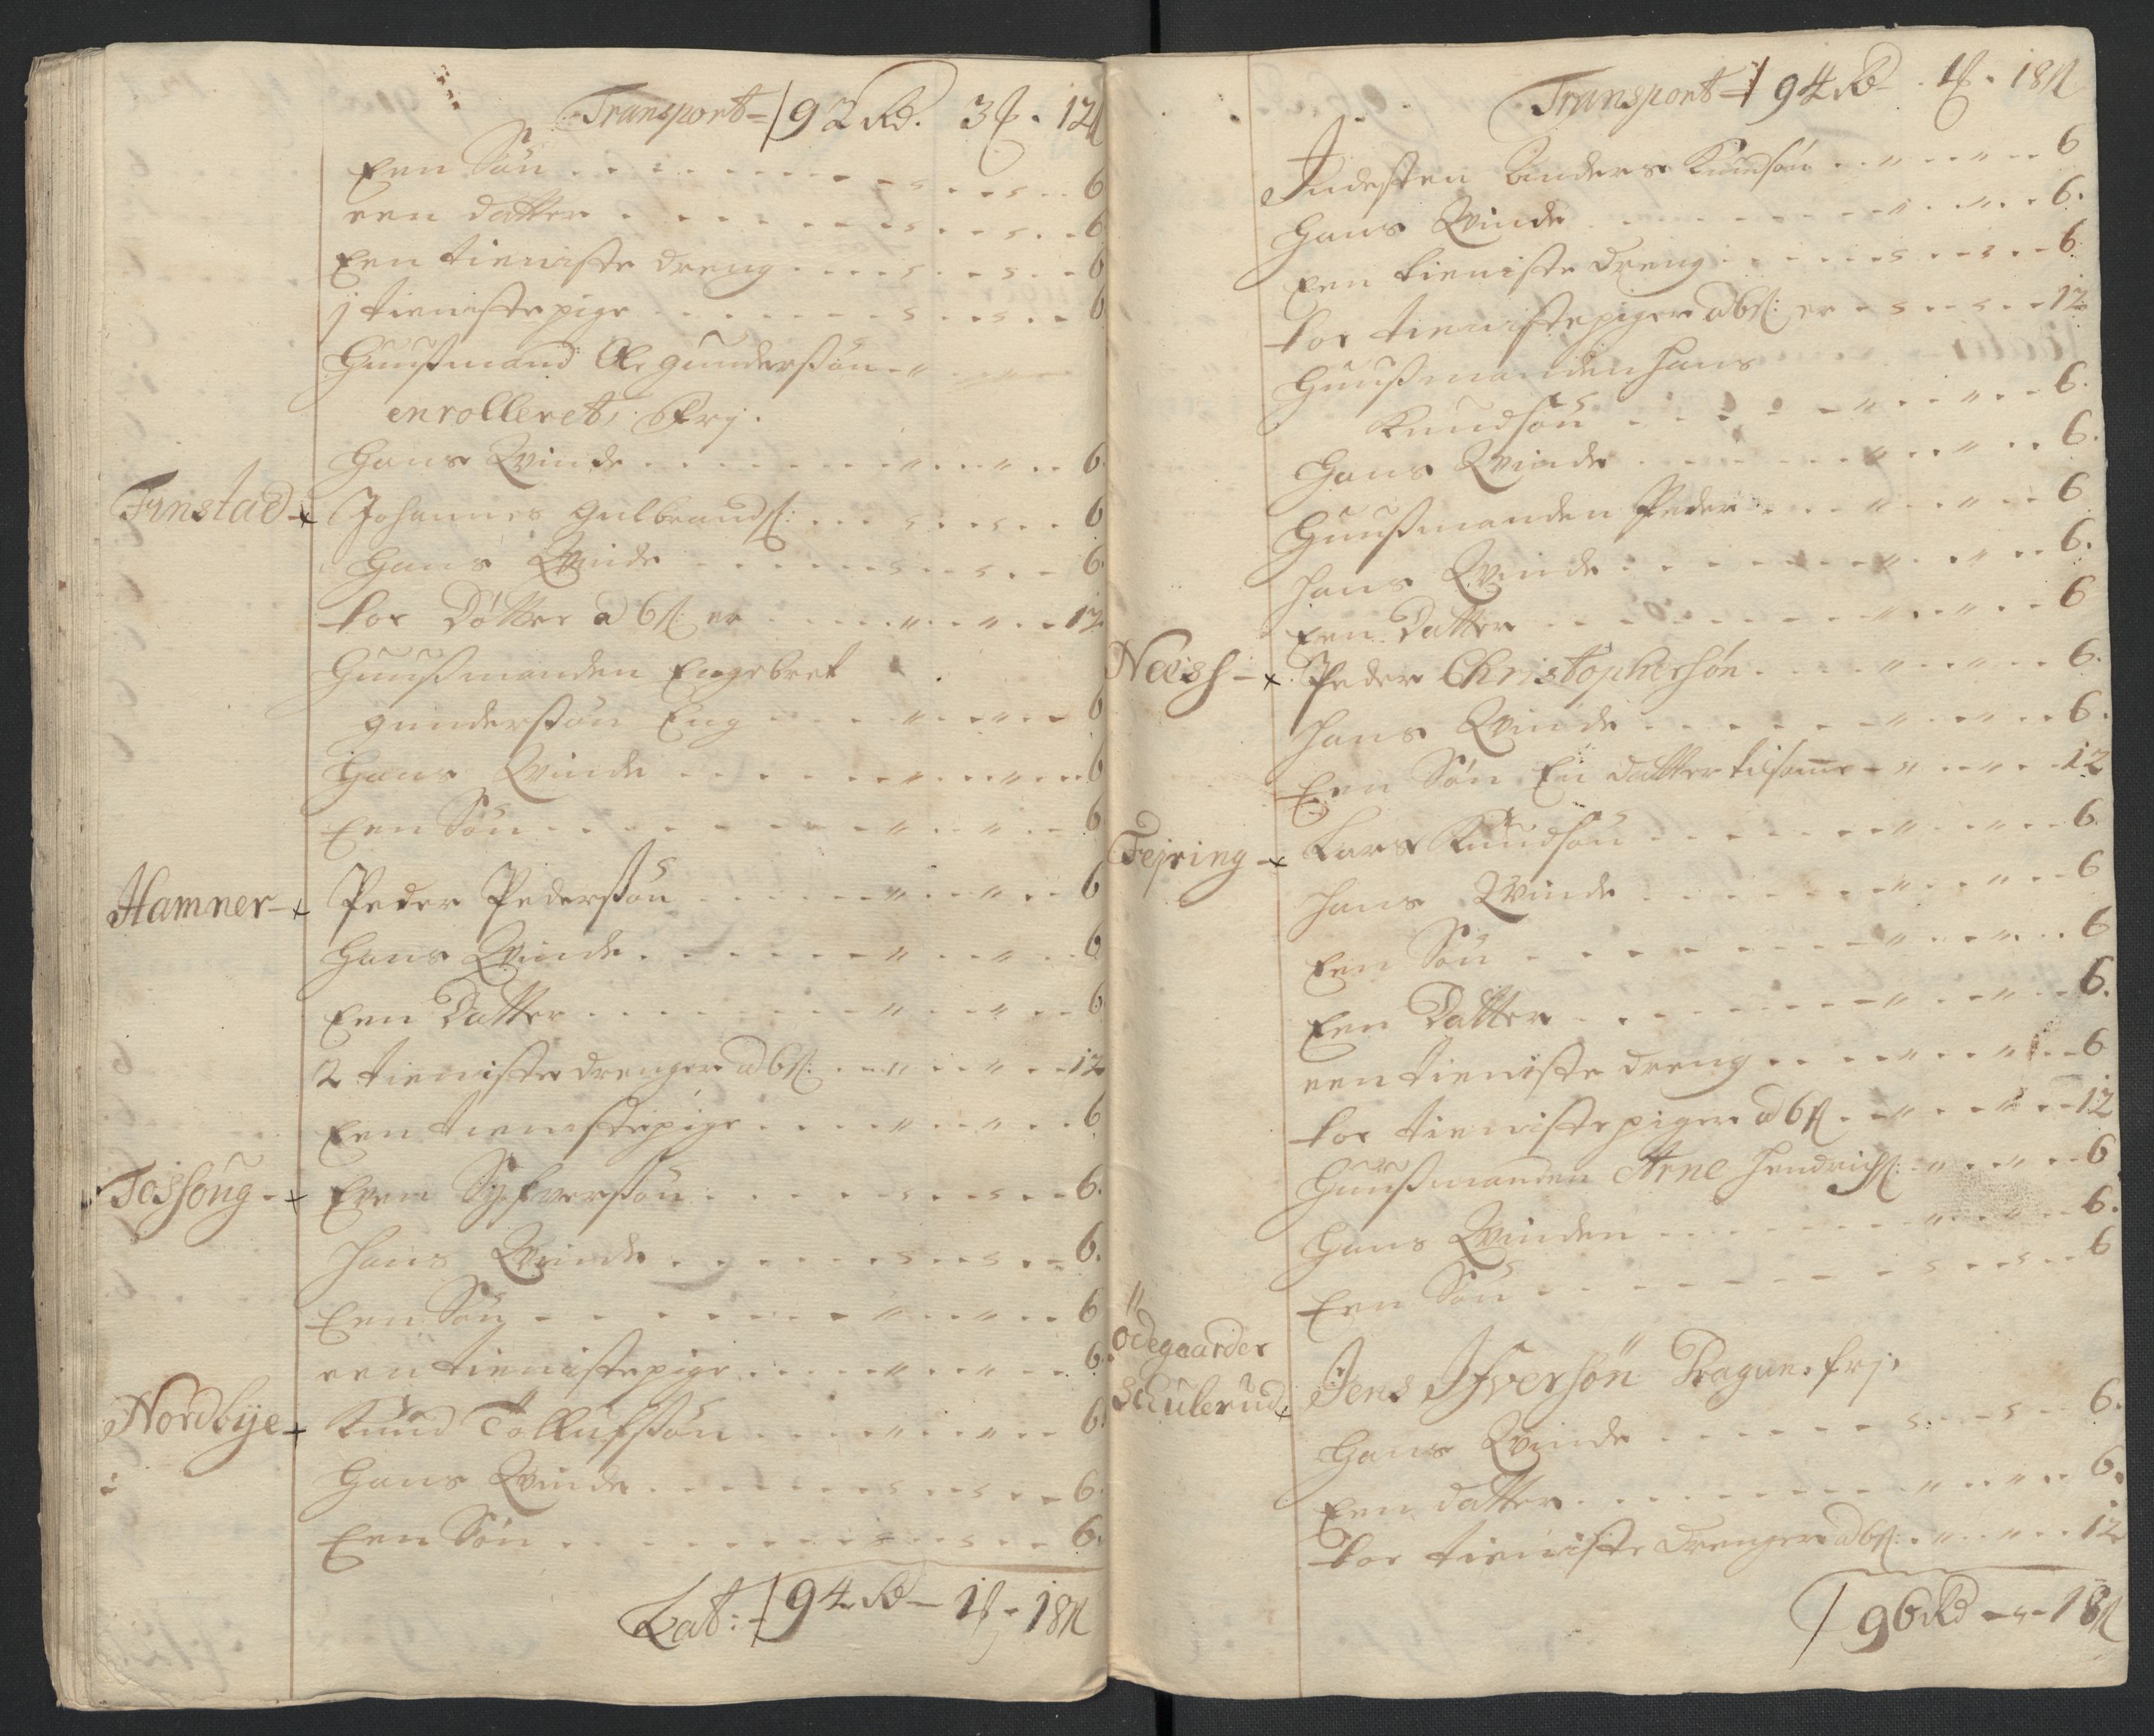 Transport 92 Rd. 3 ß. 12 ß
Een Søn 6
een datter 6
Een tieniste dreng 6
j tieniste pige 6
Huuszmand Ole Gunderszøn
enrolleret, Frj.
Hans Qvinde 6
Finstad Johannes Gulbrandsz: 6
Hans Qvinde 6
toe Døtter a 6 ß: er 12
Huuszmanden Engebret
Gunderszøn Eng 6
Hans Qvinde 6
Een Søn 6
Hamner Peder Pederszøn 6
Hans Qvinde 6
Een Datter 6
2 tieniste drenger a 6 ß: 12
Een tienistepige 6
Tosßong Even Syfverszøn 6.
Hans Qvinde 6.
Een Søn 6
een tienistepige 6.
Nordbye Knud Tollufszøn 6.
Hans Qvinde 6.
Een Søn 6.
Lat: 94 Rd – 1 ß – 18 ß
Transport 94 Rd. 1 ß. 18 ß
Indersten Anders Knudsøn 6
Hans Qvinde 6.
Een tieniste dreng 6
toe tienistepiger a 6 ß: er 12
Huuszmanden Hans
Knudsøn 6.
Hans Qvinde 6.
Huuszmanden Peder 6
Hans Qvinde 6.
Een Datter 6
Neess Peder Christophersøn 6.
Hans Qvinde 6.
Een Søn En datter tilsame 12
Tejring Lars Knudsøn 6.
Hans Qvinde 6
Een Søn 6
Een Datter 6.
een tieniste dreng 6
toe tieniste piger a 6 ß 12
Huuszmanden Arne Hendrichs: 6
Hans Qvinden 6.
Een Søn 6
Ödegaarder
Schulerud Jens Ifversøn Dragun. frj.
Hans Qvinde 6.
Een datter 6.
toe tieniste Drenger a 6 ß: 12
96 Rd – 18 ß